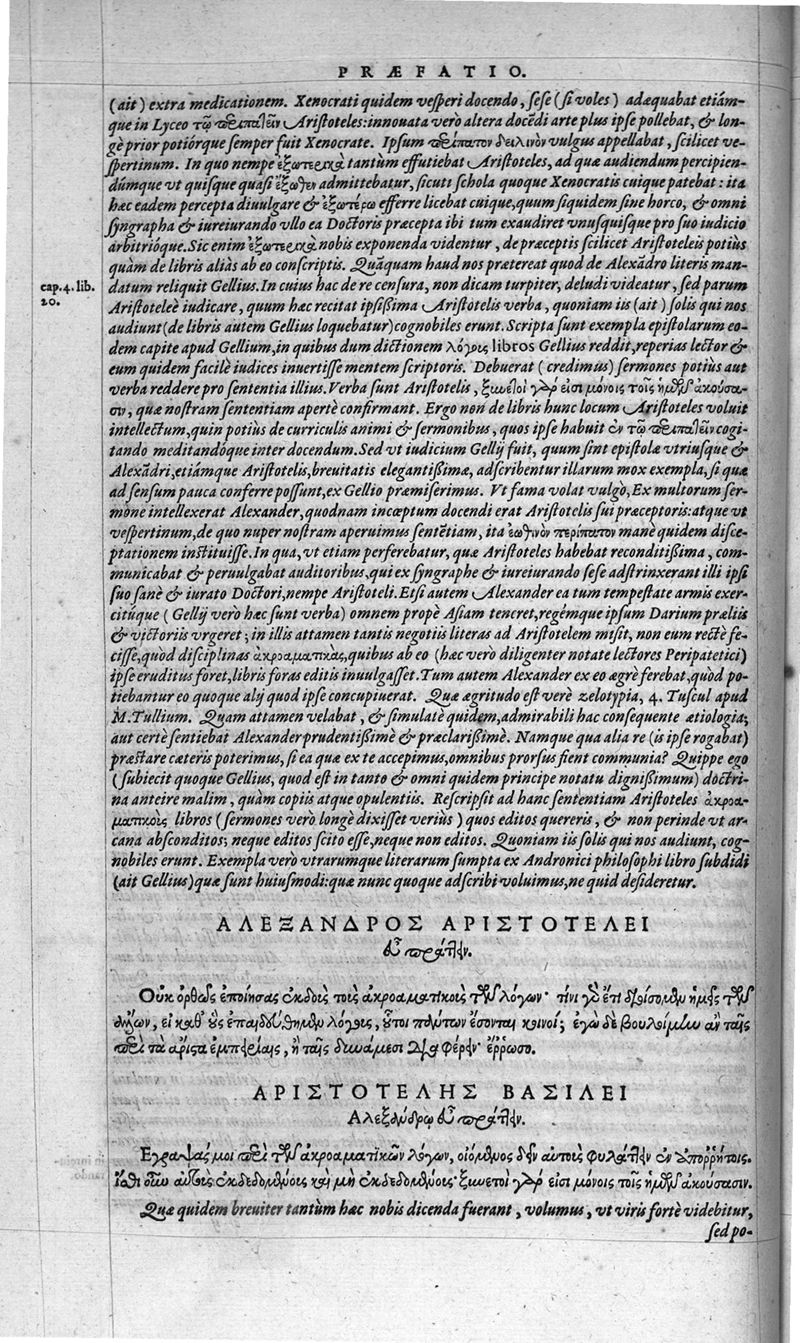 PRÆFATIO.
(ait) extra medicationem. Xenocrati quidem vesperi docendo, sese (si voles) adæquabat etiám-
que in Lyceo τῷ περιπατεῖν Aristoteles: innouata verò altera docēdi arte plus ipse pollebat, & lon-
gè prior potiórque semper fuit Xenocrate. Ipsum περίπατον δειλινὸν vulgus appellabat, scilicet ve-
spertinum. In quo nempe ἐξωτερικὰ tantùm effutiebat Aristoteles, ad quæ audiendum percipien-
dúmque vt quisque quasi ἔξωθεν admittebatur, sicuti schola quoque Xenocratis cuique patebat: ita
hæc eadem percepta diuulgare & ἐξωτέρω efferre licebat cuique, quum siquidem sine horco, & omni
syngrapha & iureiurando vllo ea Doctoris præcepta ibi tum exaudiret vnusquisque pro suo iudicio
arbitrióque. Sic enim ἐξωτερικὰ nobis exponenda videntur, de præceptis scilicet Aristoteleis potiùs
quàm de libris aliàs ab eo conscriptis. Quāquam haud nos prætereat quod de Alexādro literis man-
cap. 4. lib.
20.
datum reliquit Gellius. In cuius hac de re censura, non dicam turpiter, deludi videatur, sed parum
Aristoteleè iudicare, quum hæc recitat ipsißima Aristotelis verba, quoniam iis (ait) solis qui nos
audiunt (de libris autem Gellius loquebatur) cognobiles erunt. Scripta sunt exempla epistolarum eo-
dem capite apud Gellium, in quibus dum dictionem λόγοις libros Gellius reddit, reperias lector &
eum quidem facilè iudices inuertisse mentem scriptoris. Debuerat (credimus) sermones potiùs aut
verba reddere pro sententia illius. Verba sunt Aristotelis, ξυνετοὶ γάρ εἰσι μόνοις τοῖς ἡμῶν ἀκούσα-
σιν, quæ nostram sententiam apertè confirmant. Ergo non de libris hunc locum Aristoteles voluit
intellectum, quin potiùs de curriculis animi & sermonibus, quos ipse habuit ἐν τῷ περιπατεῖν cogi-
tando meditandóque inter docendum. Sed vt iudicium Gellij fuit, quum sint epistolæ vtriusque &
Alexādri, etiámque Aristotelis, breuitatis elegantißimæ, adscribentur illarum mox exempla, si quæ
ad sensum pauca conferre possunt, ex Gellio præmiserimus. Vt fama volat vulgò, Ex multorum ser-
mone intellexerat Alexander, quodnam incœptum docendi erat Aristotelis sui præceptoris: atque vt
vespertinum, de quo nuper nostram aperuimus sentētiam, ita ἑωθινὸν περίπατον manè quidem disce-
ptationem instituisse. In qua, vt etiam perferebatur, quæ Aristoteles habebat reconditißima, com-
municabat & peruulgabat auditoribus, qui ex syngraphe & iureiurando sese adstrinxerant illi ipsi
suo sanè & iurato Doctori, nempe Aristoteli. Etsi autem Alexander ea tum tempestate armis exer-
citúque (Gellij verò hæc sunt verba) omnem propè Asiam teneret, regémque ipsum Darium præliis
& victoriis vrgeret; in illis attamen tantis negotiis literas ad Aristotelem misit, non eum rectè fe-
cisse, quòd disciplinas ἀκροαματικὰς, quibus ab eo (hæc verò diligenter notate lectores Peripatetici)
ipse eruditus foret, libris foras editis inuulgasset. Tum autem Alexander ex eo ægrè ferebat, quòd po-
tiebantur eo quoque alij quod ipse concupiuerat. Quæ ægritudo est verè zelotypia, 4. Tuscul apud
M. Tullium. Quam attamen velabat, & simulatè quidem, admirabili hac consequente ætiologia;
aut certè sentiebat Alexander prudentißimè & præclarißimè. Namque qua alia re (is ipse rogabat)
præstare cæteris poterimus, si ea quæ ex te accepimus, omnibus prorsus fient communia? Quippe ego
(subiecit quoque Gellius, quod est in tanto & omni quidem principe notatu dignißimum) doctri-
na anteire malim, quàm copiis atque opulentiis. Rescripsit ad hanc sententiam Aristoteles ἀκροα-
ματικοῖς libros (sermones verò longè dixisset veriùs) quos editos quereris, & non perinde vt ar-
cana absconditos; neque editos scito esse, neque non editos. Quoniam iis solis qui nos audiunt, cog-
nobiles erunt. Exempla verò vtrarumque literarum sumpta ex Andronici philosophi libro subdidi
(ait Gellius) quæ sunt huiusmodi: quæ nunc quoque adscribi voluimus, ne quid desideretur.
ΑΛΕΞΑΝΔΡΟΣ ΑΡΙΣΤΟΤΕΛΕΙ
εὖ πράττειν.
Οὐκ ὀρθῶς ἐποίησας ἐκδοὺς τοὺς ἀκροαματικοὺς τῶν λόγων· τίνι γὰρ ἔτι διοίσομεν ἡμεῖς τῶν
ἄλλων, εἰ καθ' οὓς ἐπαιδεύθημεν λόγοις, οὗτοι πάντων ἔσονται κοινοί; ἐγὼ δὲ βουλοίμην ἂν ταῖς
περὶ τὰ ἄριστα ἐμπειρίαις, ἢ ταῖς δυνάμεσι διαφέρειν· ἔρρωσο.
ΑΡΙΣΤΟΤΕΛΗΣ ΒΑΣΙΛΕΙ
Αλεξάνδρῳ εὖ πράττειν.
Εγραψάς μοι περὶ τῶν ἀκροαματικῶν λόγων, οἰόμενος δεῖν αὐτοὺς φυλάττειν ἐν ἀπορρήτοις.
ἴσθι οὖν αὐτοὺς ἐκδεδομένους καὶ μὴ ἐκδεδομένους· ξυνετοὶ γάρ εἰσι μόνοις τοῖς ἡμῶν ἀκούσασιν.
Quæ quidem breuiter tantùm hæc nobis dicenda fuerant, volumus, vt viris fortè videbitur,
sed po-